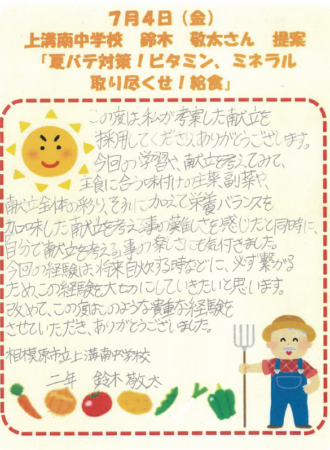 7月4日（金）
上溝南中学校　鈴木　敬太さん　提案
「夏バテ対策！ビタミン、ミネラル
取り尽くせ！給食」
この度は、私が考案した献立を
採用してくださり、ありがとうございます。
今回の学習や、献立を考えてみて、
主食に合う味付けの主菜、副菜や、
献立全体の彩り、それに加えて栄養バランスを
加味した献立を考える事の難しさを感じたと同時に、
自分で献立を考える事の楽しさにも気付きました。
今回の経験は、将来自炊する時などに、必ず繋がる
ため、この経験を大切にしていきたいと思います。
改めて、この度はこのような貴重な経験を
させていただき、ありがとうございました。
相模原市立上溝南中学校
二年　鈴木敬太